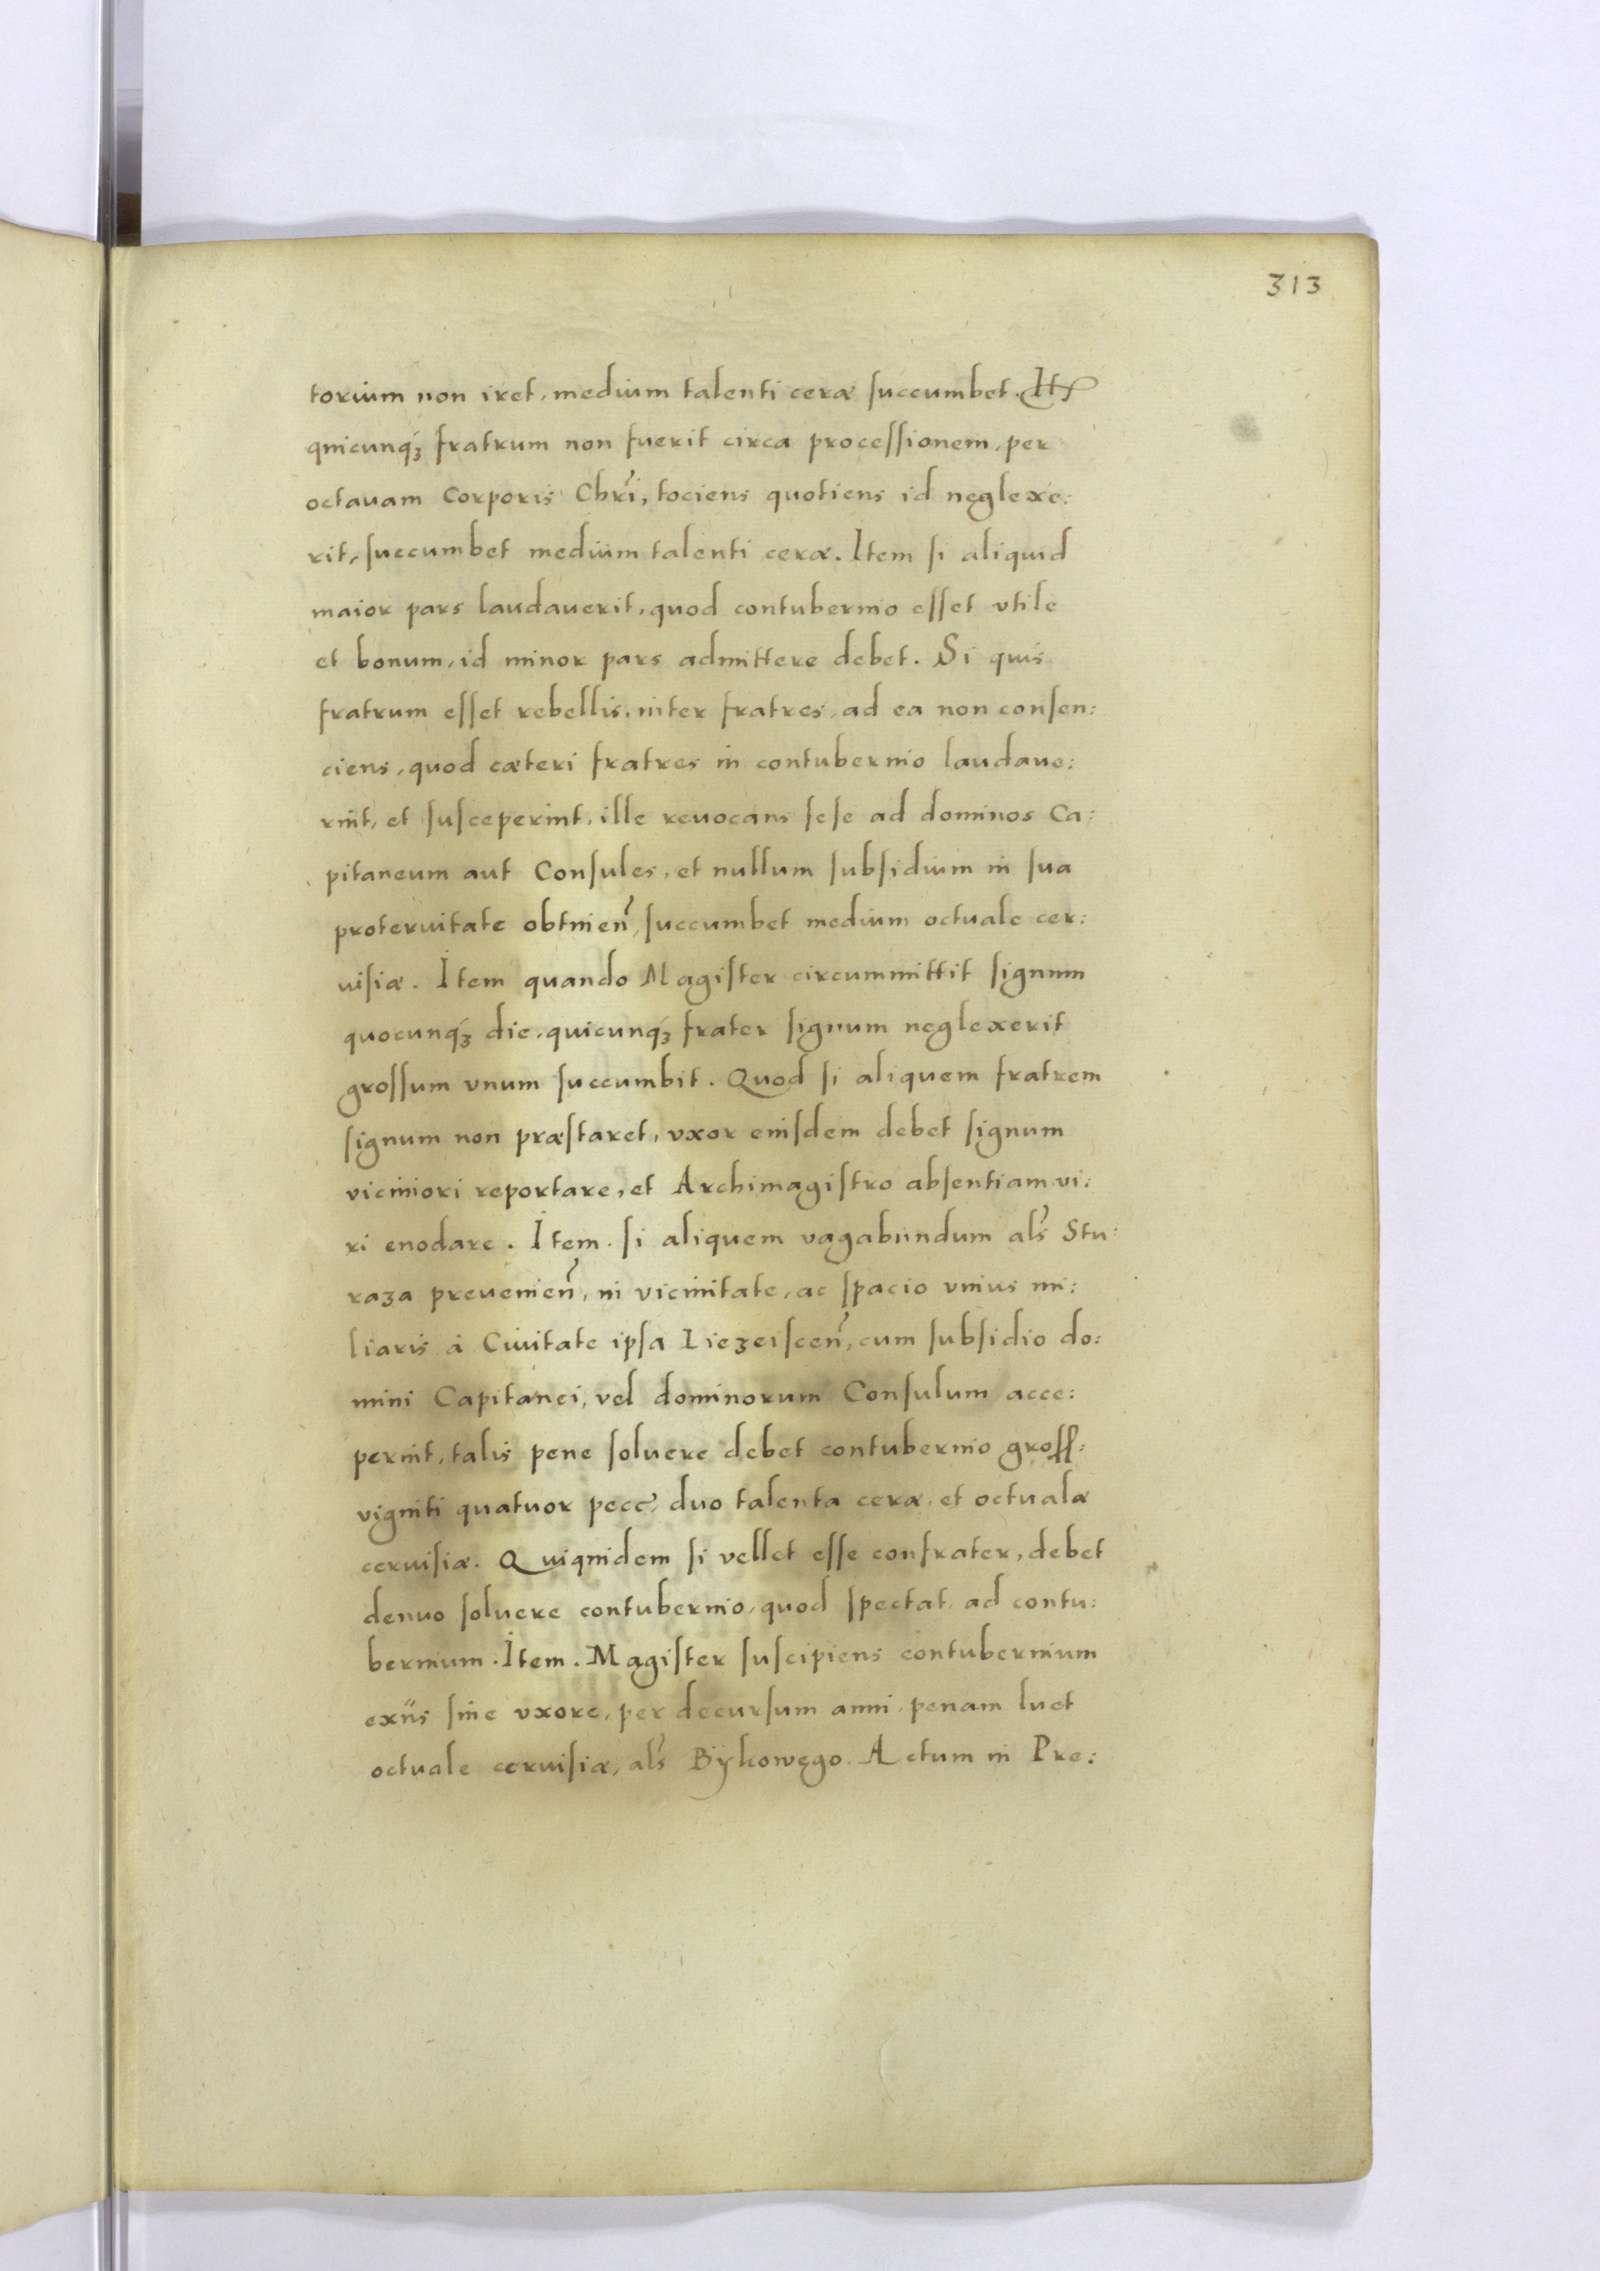 313
torium non iret, medium talenti ceræ ſuccumbet. Itꝫ
quicunqꝫ fratrum non fuerit circa proceſſionem, per
octauam Corporis Chrĩ, tociens quotiens id neglexe:
rit, ſuccumbet medium talenti ceræ. Item ſi aliquid
maior pars laudauerit, quod contubernio eſſet vtile
et bonum, id minor pars admittere debet. Si quis
fratrum eſſet rebellis, inter fratres, ad ea non conſen:
ciens, quod cæteri fratres in contubernio laudaue:
rint, et ſuſceperint, ille reuocans ſeſe ad dominos Ca:
pitaneum aut Conſules, et nullum ſubſidium in ſua
proteruitate obtineñ, ſuccumbet medium octuale cer:
uiſiæ. Item quando Magiſter circummittit ſignum
quocunqꝫ die, quicunqꝫ frater ſignum neglexerit
groſſum vnum ſuccumbit. Quod ſi aliquem fratrem
ſignum non præſtaret, vxor eiuſdem debet ſignum
viciniori reportare, et Archimagiſtro abſentiam vi:
ri enodare. Item. ſi aliquem vagabundum als̃ Stu:
raza preuenieñ, in vicinitate, ac ſpacio vnius mi:
liaris à Ciuitate ipſa Liezeiſceñ, cum ſubſidio do:
mini Capitanei, vel dominorum Conſulum acce:
perint, talis pene ſoluere debet contubernio groſſ:
viginti quatuor pecc, duo talenta ceræ, et octualæ
ceruiſiæ. Quiquidem ſi vellet eſſe confrater, debet
denuo ſoluere contubernio, quod ſpectat, ad contu:
bernium. Item. Magiſter ſuſcipiens contubernium
exijs ſine vxore, per decurſum anni, penam luet
octuale ceruiſiæ, als̃ Bÿkowęgo. Actum in Pre: